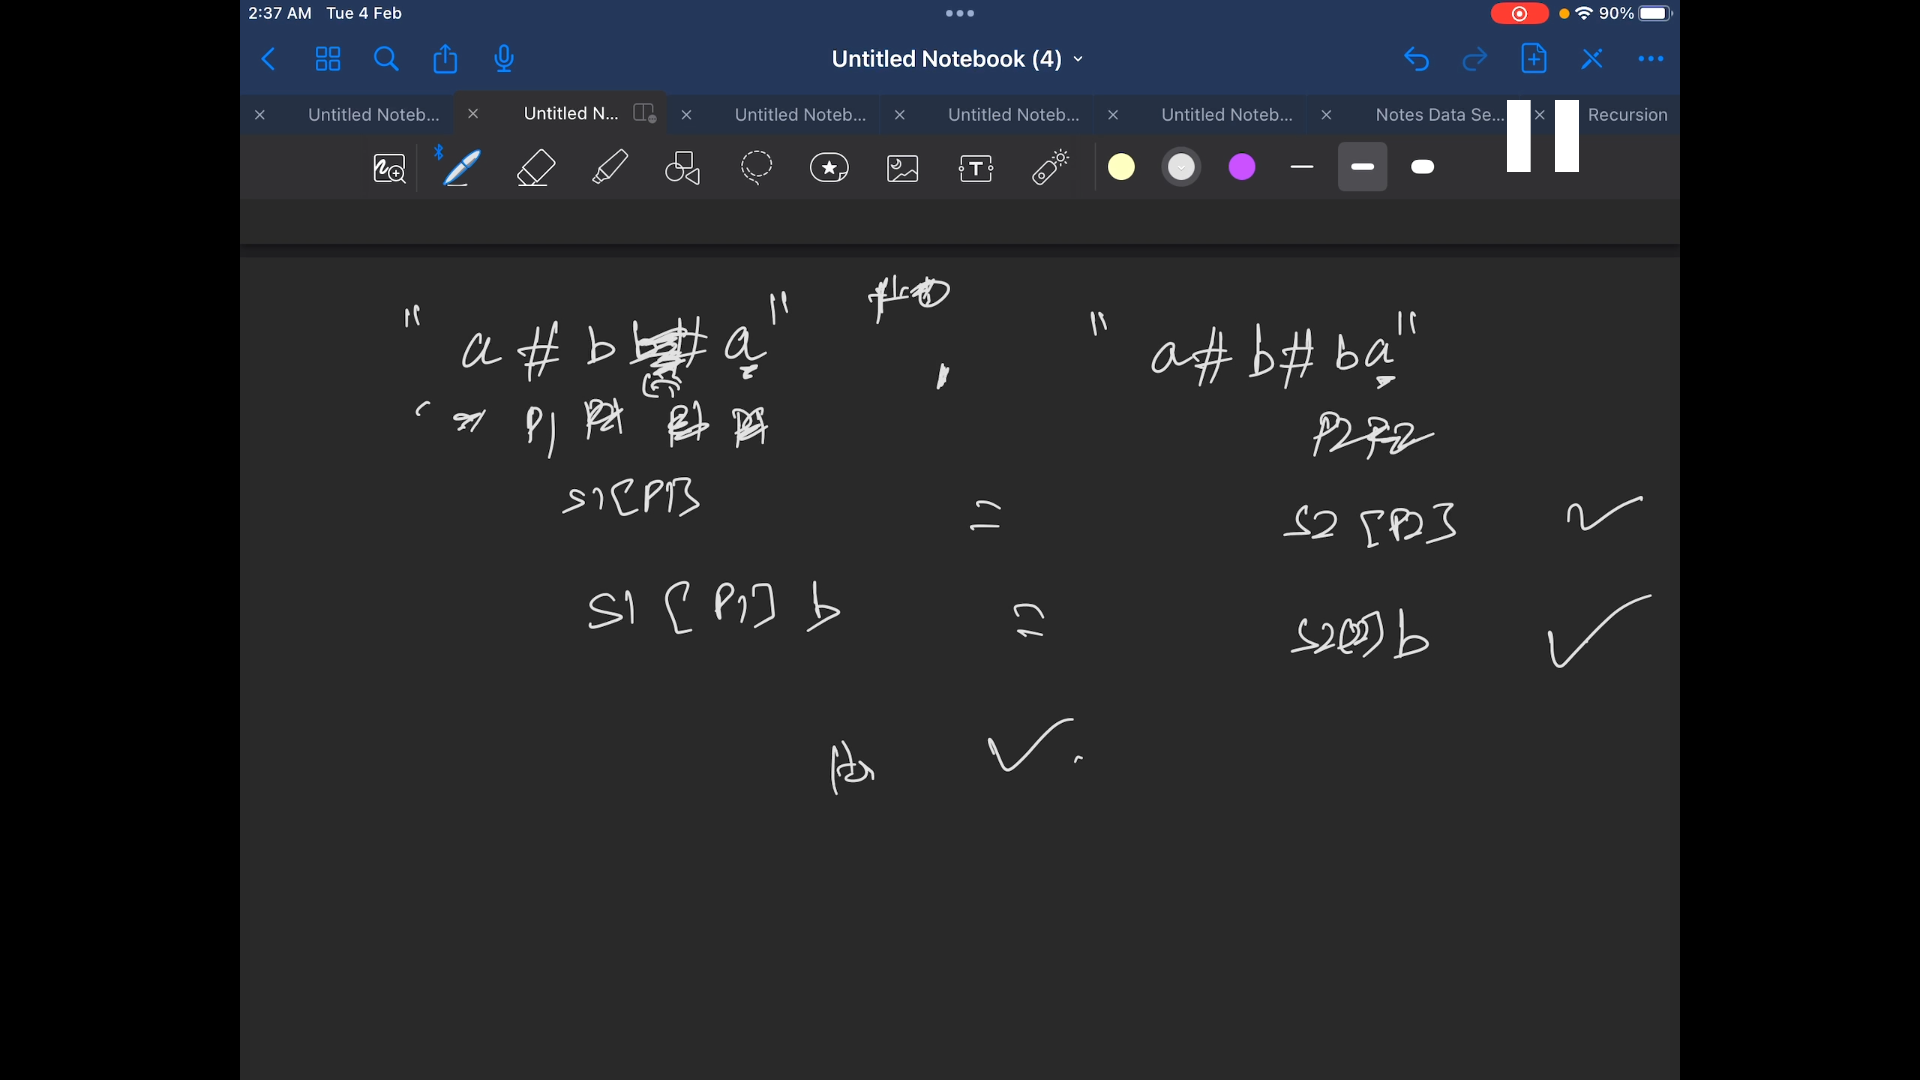 2:37 AM Tue 4 Feb
90%
Untitled Notebook (4)
Untitled Noteb...
Untitled N...
Untitled Noteb...
Untitled Noteb...
Untitled Noteb...
Notes Data Se...
Recursion
T
" a # b # a " , " a # b # b a "
P1 P2 P2
S1[P1] = S2[P2]
S1[P1] b = S2[P2] b